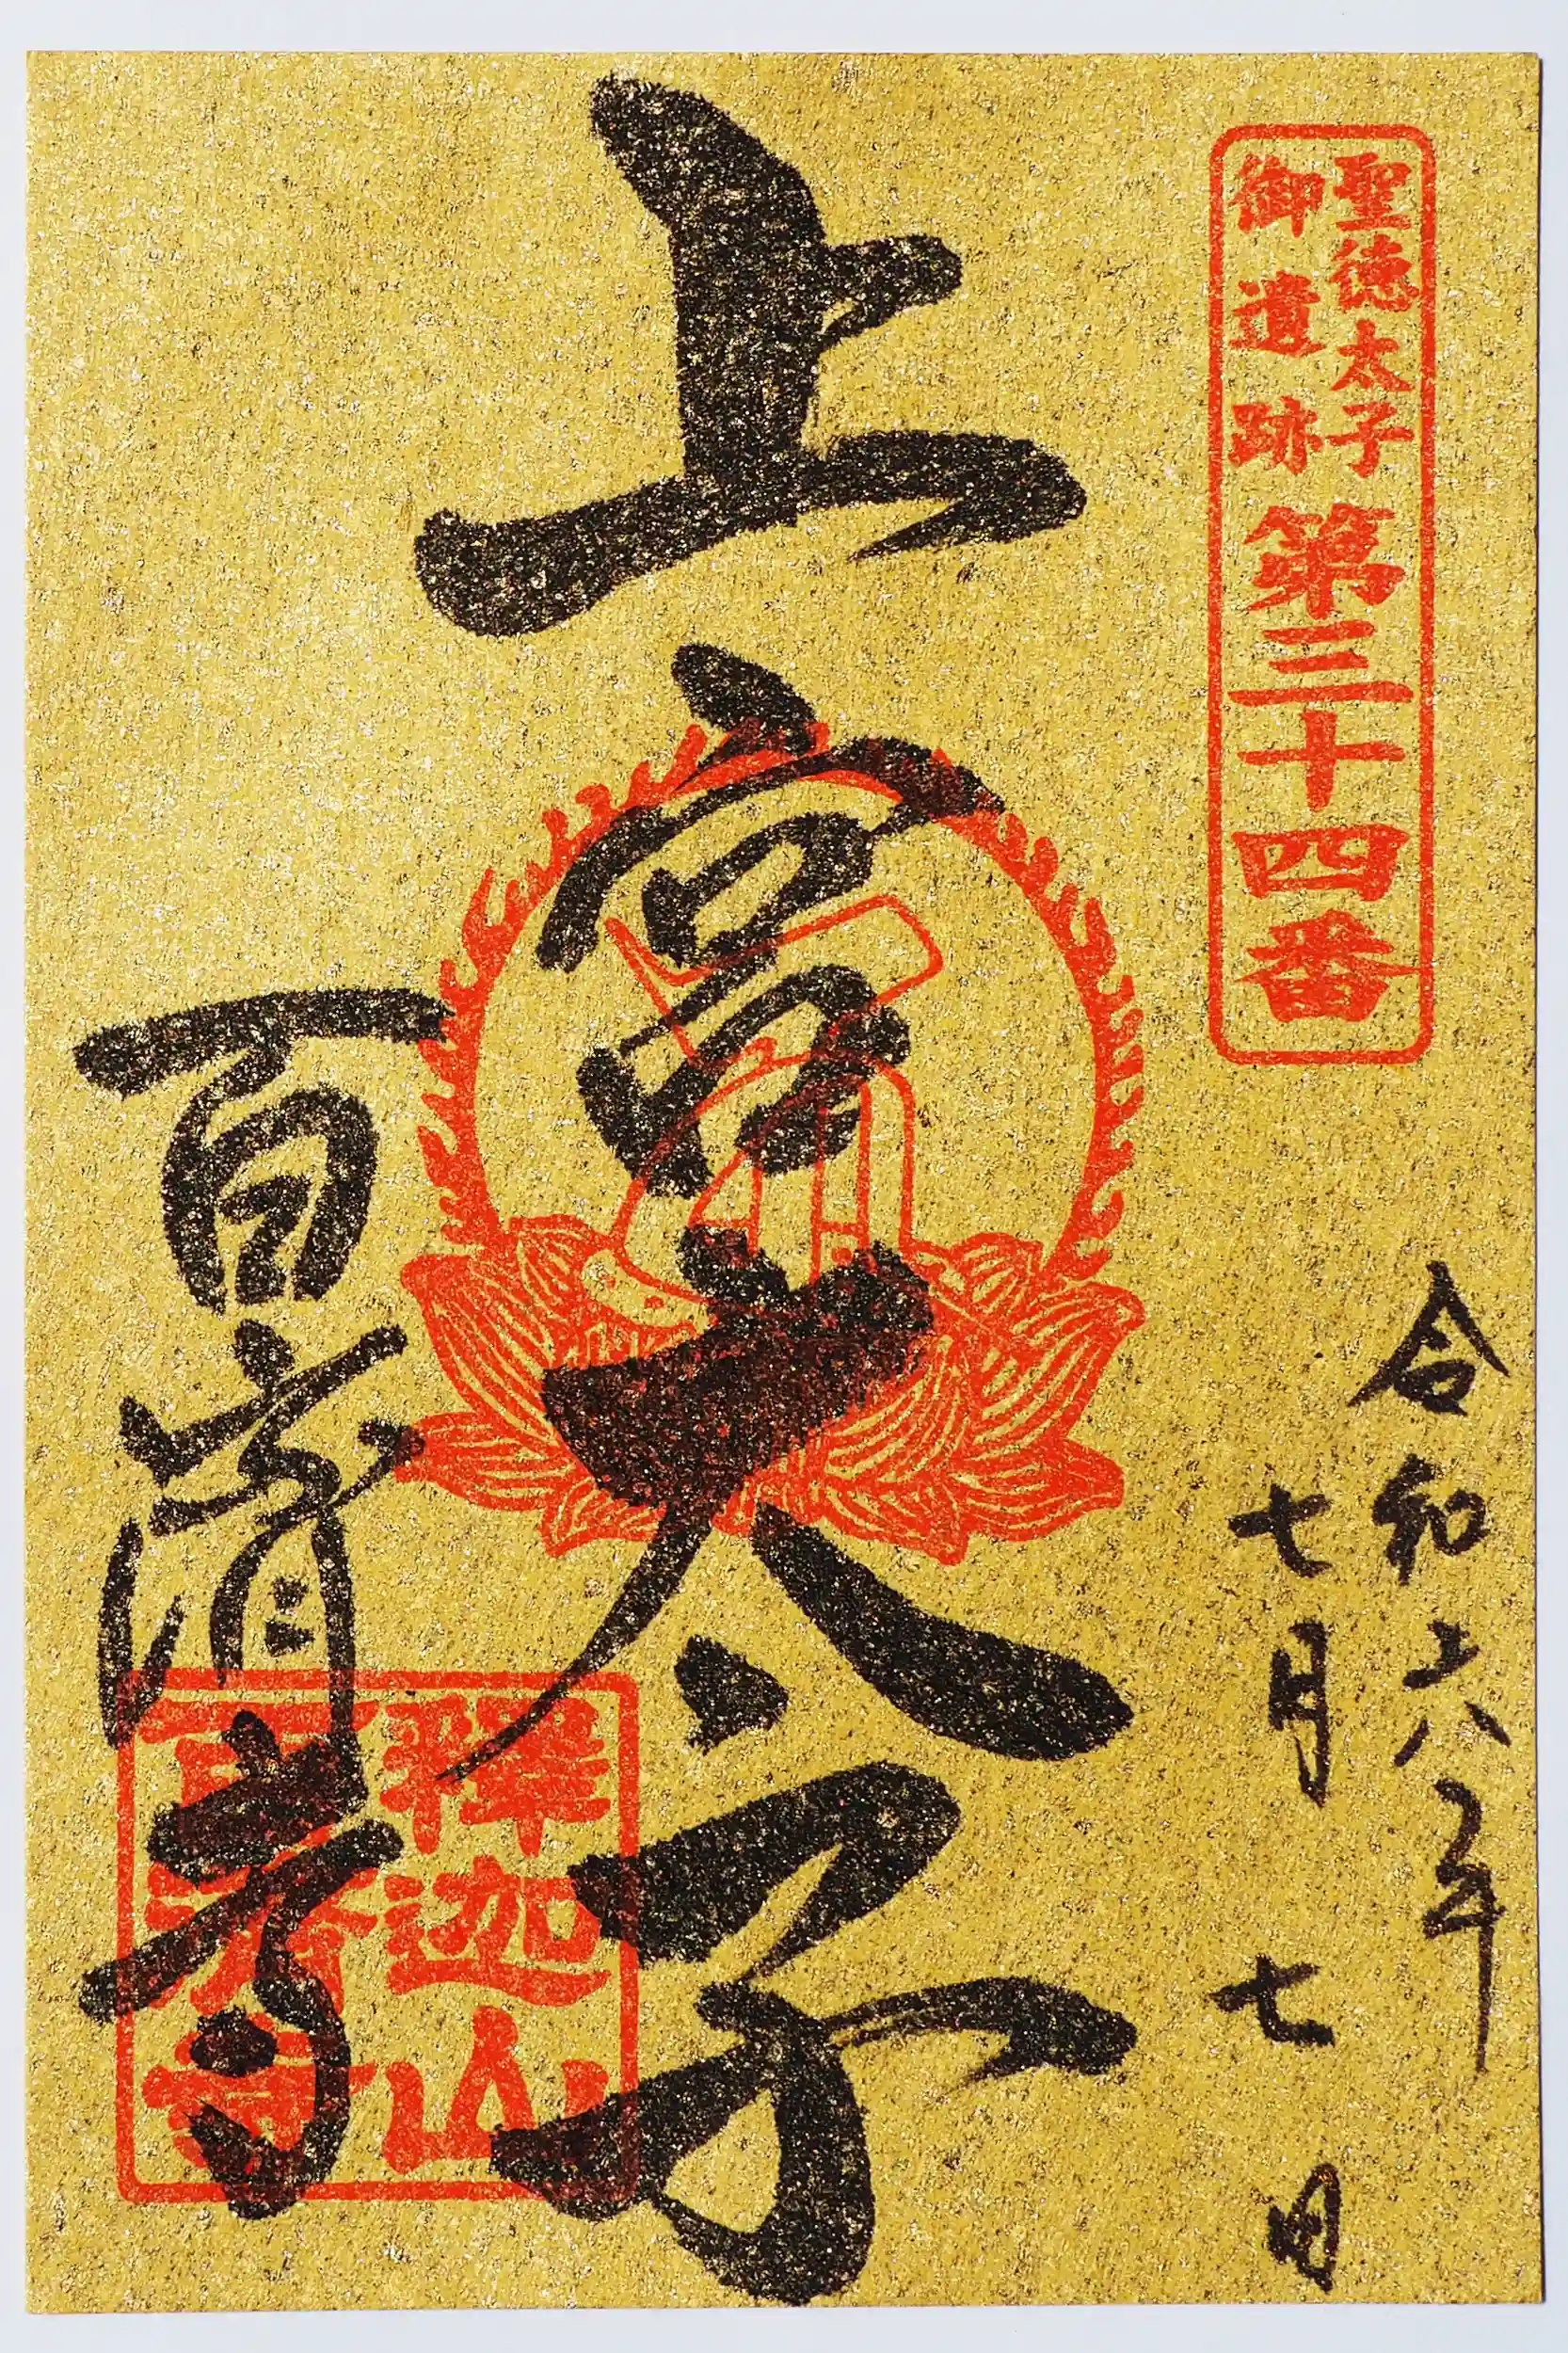 聖徳太子
御遺跡
第三十四番
令和六年
七月七日
上宮太子
百済寺
釋迦山
百済寺